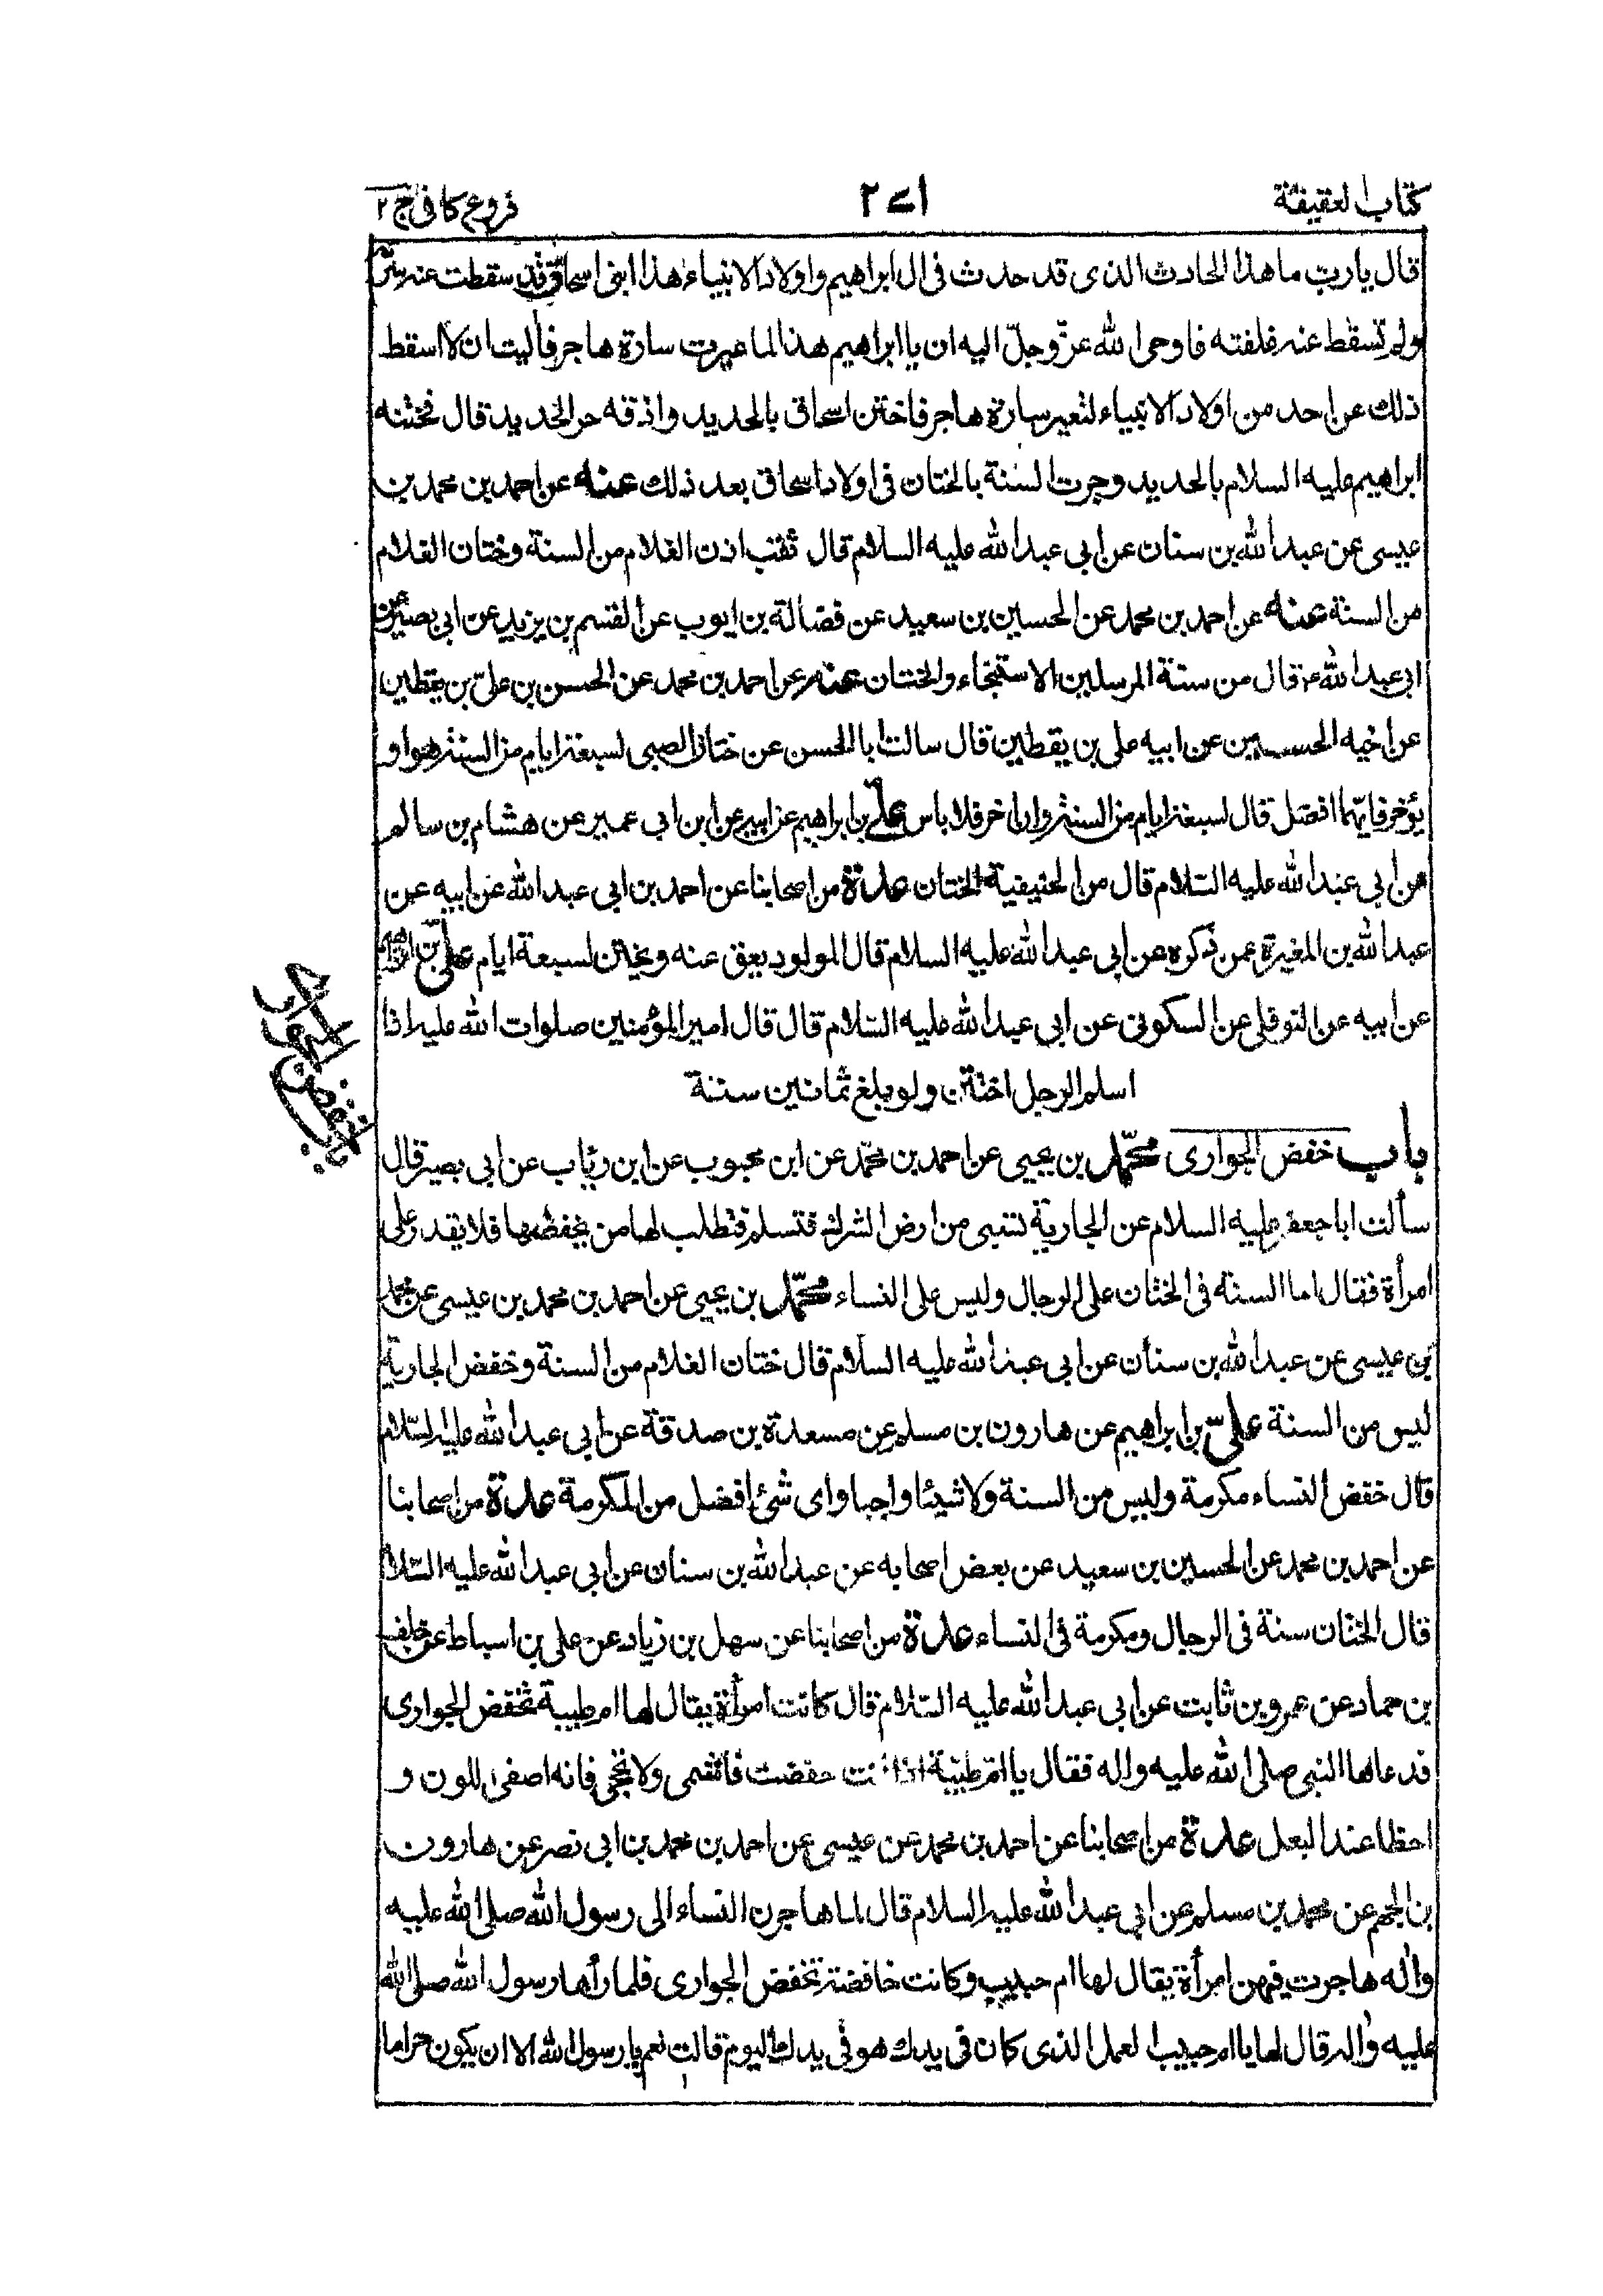 كتاب العقيقة
٢٧١
فروع كافى ج ٢
قال يارب ما هذا الحادث الذى قد حدث فى ال ابراهيم واولاد الانبياء هذا ابنى اسحاق قد سقطت عنه سرته
ولم تسقط عنه غلفته فاوحى الله عزّ وجلّ اليه ان يا ابراهيم هذا لما عيرت سارة هاجر فاليت ان لا اسقط
ذلك عن احد من اولاد الانبياء لتعيير سارة هاجر فاختن اسحاق بالحديد واذقه حر الحديد قال فختنه
ابراهيم عليه السلام بالحديد وجرت السنة بالختان فى اولاد اسحاق بعد ذلك عنه عن احمد بن محمد بن
عيسى عن عبدالله بن سنان عن ابى عبدالله عليه السلام قال ثقب اذن الغلام من السنة وختان الغلام
من السنة عنه عن احمد بن محمد عن الحسين بن سعيد عن فضالة بن ايوب عن القسم بن يزيد عن ابى بصير عن
ابى عبدالله ع قال من سنة المرسلين الاستنجاء والختان عنه عن احمد بن محمد عن الحسن بن علىّ بن يقطين
عن اخيه الحسين عن ابيه على بن يقطين قال سالت ابا الحسن عن ختان الصبى لسبعة ايام من السنة هو او
يؤخر فايّهما افضل قال لسبعة ايام من السنة وان اخر فلا باس علىّ بن ابراهيم عن ابيه عن ابن ابى عمير عن هشام بن سالم
عن ابى عبدالله عليه السّلام قال من الحنيفية الختان عدة من اصحابنا عن احمد بن ابى عبدالله عن ابيه عن
عبدالله بن المغيرة عمن ذكره عن ابى عبدالله عليه السلام قال المولود يعق عنه ويختن لسبعة ايام علىّ بن ابراهيم
عن ابيه عن النوفلى عن السكونى عن ابى عبدالله عليه السّلام قال قال امير المؤمنين صلوات الله عليه اذا
اسلم الرجل اختتن ولو بلغ ثمانين سنة
باب خفض الجوارى محمّد بن يحيى عن احمد بن محمّد عن ابن محبوب عن ابن رئاب عن ابى بصير قال
سألت اباجعفر عليه السلام عن الجارية تسبى من ارض الشرك فتسلم فتطلب لها من يخفضها فلا يقدر على
امرأة فقال اما السنة فى الختان على الرجال وليس على النساء محمّد بن يحيى عن احمد بن محمد بن عيسى عن محمد
بن عيسى عن عبدالله بن سنان عن ابى عبدالله عليه السلام قال ختان الغلام من السنة وخفض الجارية
ليس من السنة علىّ بن ابراهيم عن هارون بن مسلم عن مسعدة بن صدقة عن ابى عبدالله عليه السّلام
قال خفض النساء مكرمة وليس من السنة ولا شيئا واجبا واى شئ افضل من المكرمة عدة من اصحابنا
عن احمد بن محمد عن الحسين بن سعيد عن بعض اصحابه عن عبدالله بن سنان عن ابى عبدالله عليه السّلام
قال الختان سنة فى الرجال ومكرمة فى النساء عدة من اصحابنا عن سهل بن زياد عن على بن اسباط عن خلف
بن حماد عن عمرو بن ثابت عن ابى عبدالله عليه السّلام قال كانت امرأة يقال لها ام طيبة تخفض الجوارى
فدعاها النبى صلى الله عليه واله فقال يا امّ طيبة اذا انت خفضت فاشمى ولا تجحفى فانه اصفى للون و
احظا عند البعل عدة من اصحابنا عن احمد بن محمد عن عيسى عن احمد بن محمد بن ابى نصر عن هارون
بن الجهم عن محمد بن مسلم عن ابى عبدالله عليه السلام قال لما هاجرن النساء الى رسول الله صلى الله عليه
واله هاجرت فيهن امرأة يقال لها ام حبيب وكانت خافضة تخفض الجوارى فلما رأها رسول الله صلى الله
عليه واله قال لها يا ام حبيب العمل الذى كان فى يدك هو فى يدك اليوم قالت نعم يا رسول الله الا ان يكون حراما
باب خفض الجوارى